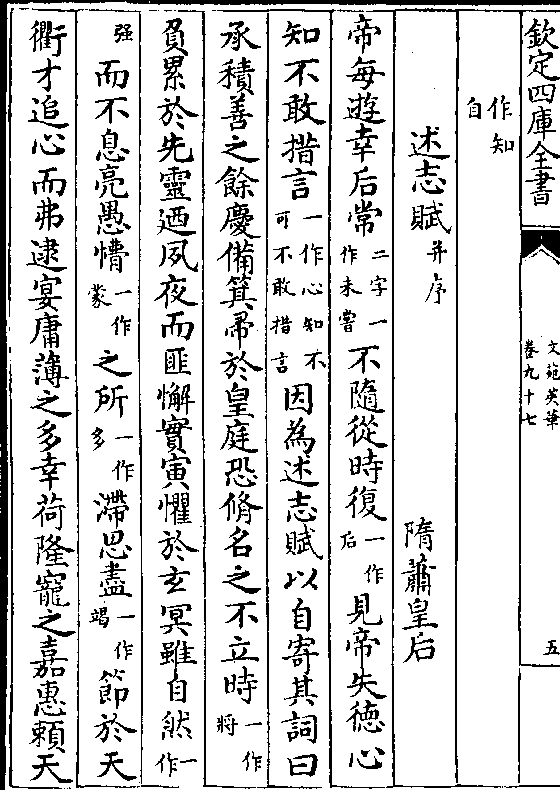 欽定四庫全書
文苑英華
卷九十七
五
作知
自
述志賦并序
隋蕭皇后
帝每遊幸后常二字一作未嘗不隨從時復一作后見帝失德心
知不敢措言一作心知不可不敢措言因為述志賦以自寄其詞曰
承積善之餘慶備箕帚於皇庭恐脩名之不立時一作將
負累於先靈迺夙夜而匪懈實寅懼於玄冥雖自然一作
强而不息亮愚懵一作蒙之所一作多滯思盡一作竭節於天
衢才追心而弗逮宴庸薄之多幸荷隆寵之嘉惠賴天